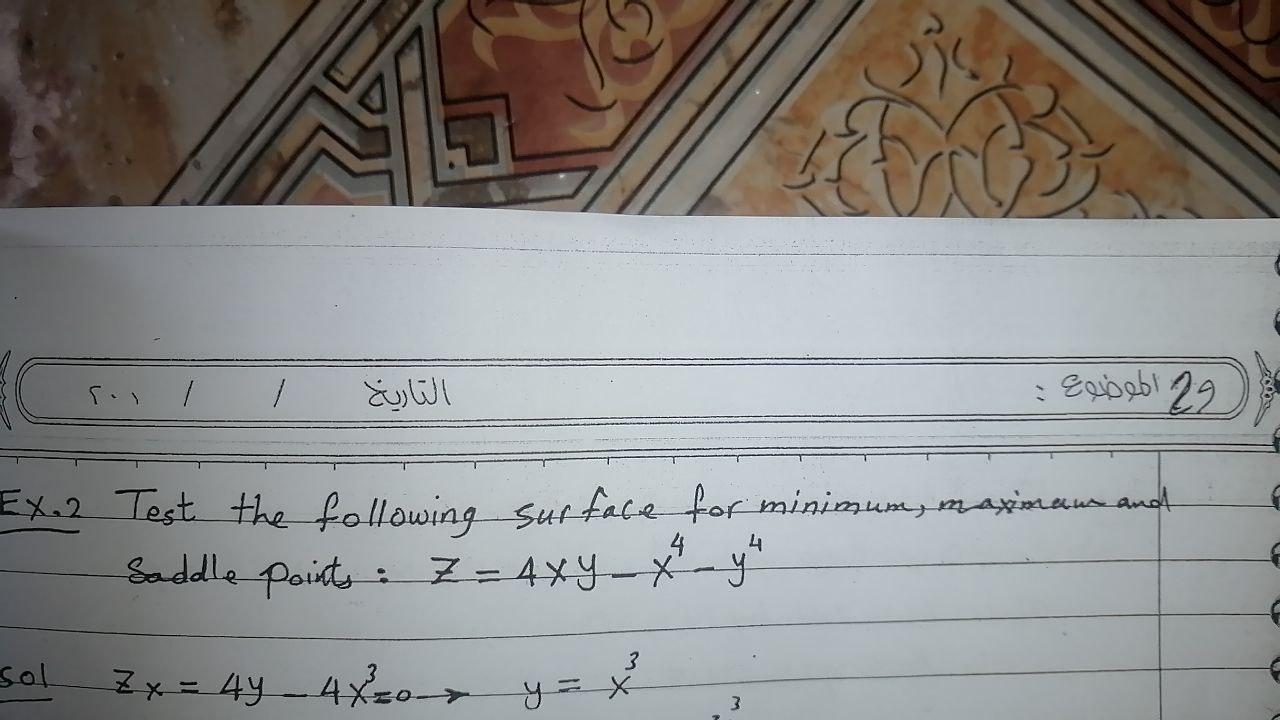 29 الموضوع :
التاريخ / / ٢٠١
Ex.2 Test the following surface for minimum, maximum and
Saddle points : Z = 4xy - x⁴ - y⁴
Sol Zx = 4y - 4x³ = 0 → y = x³
3